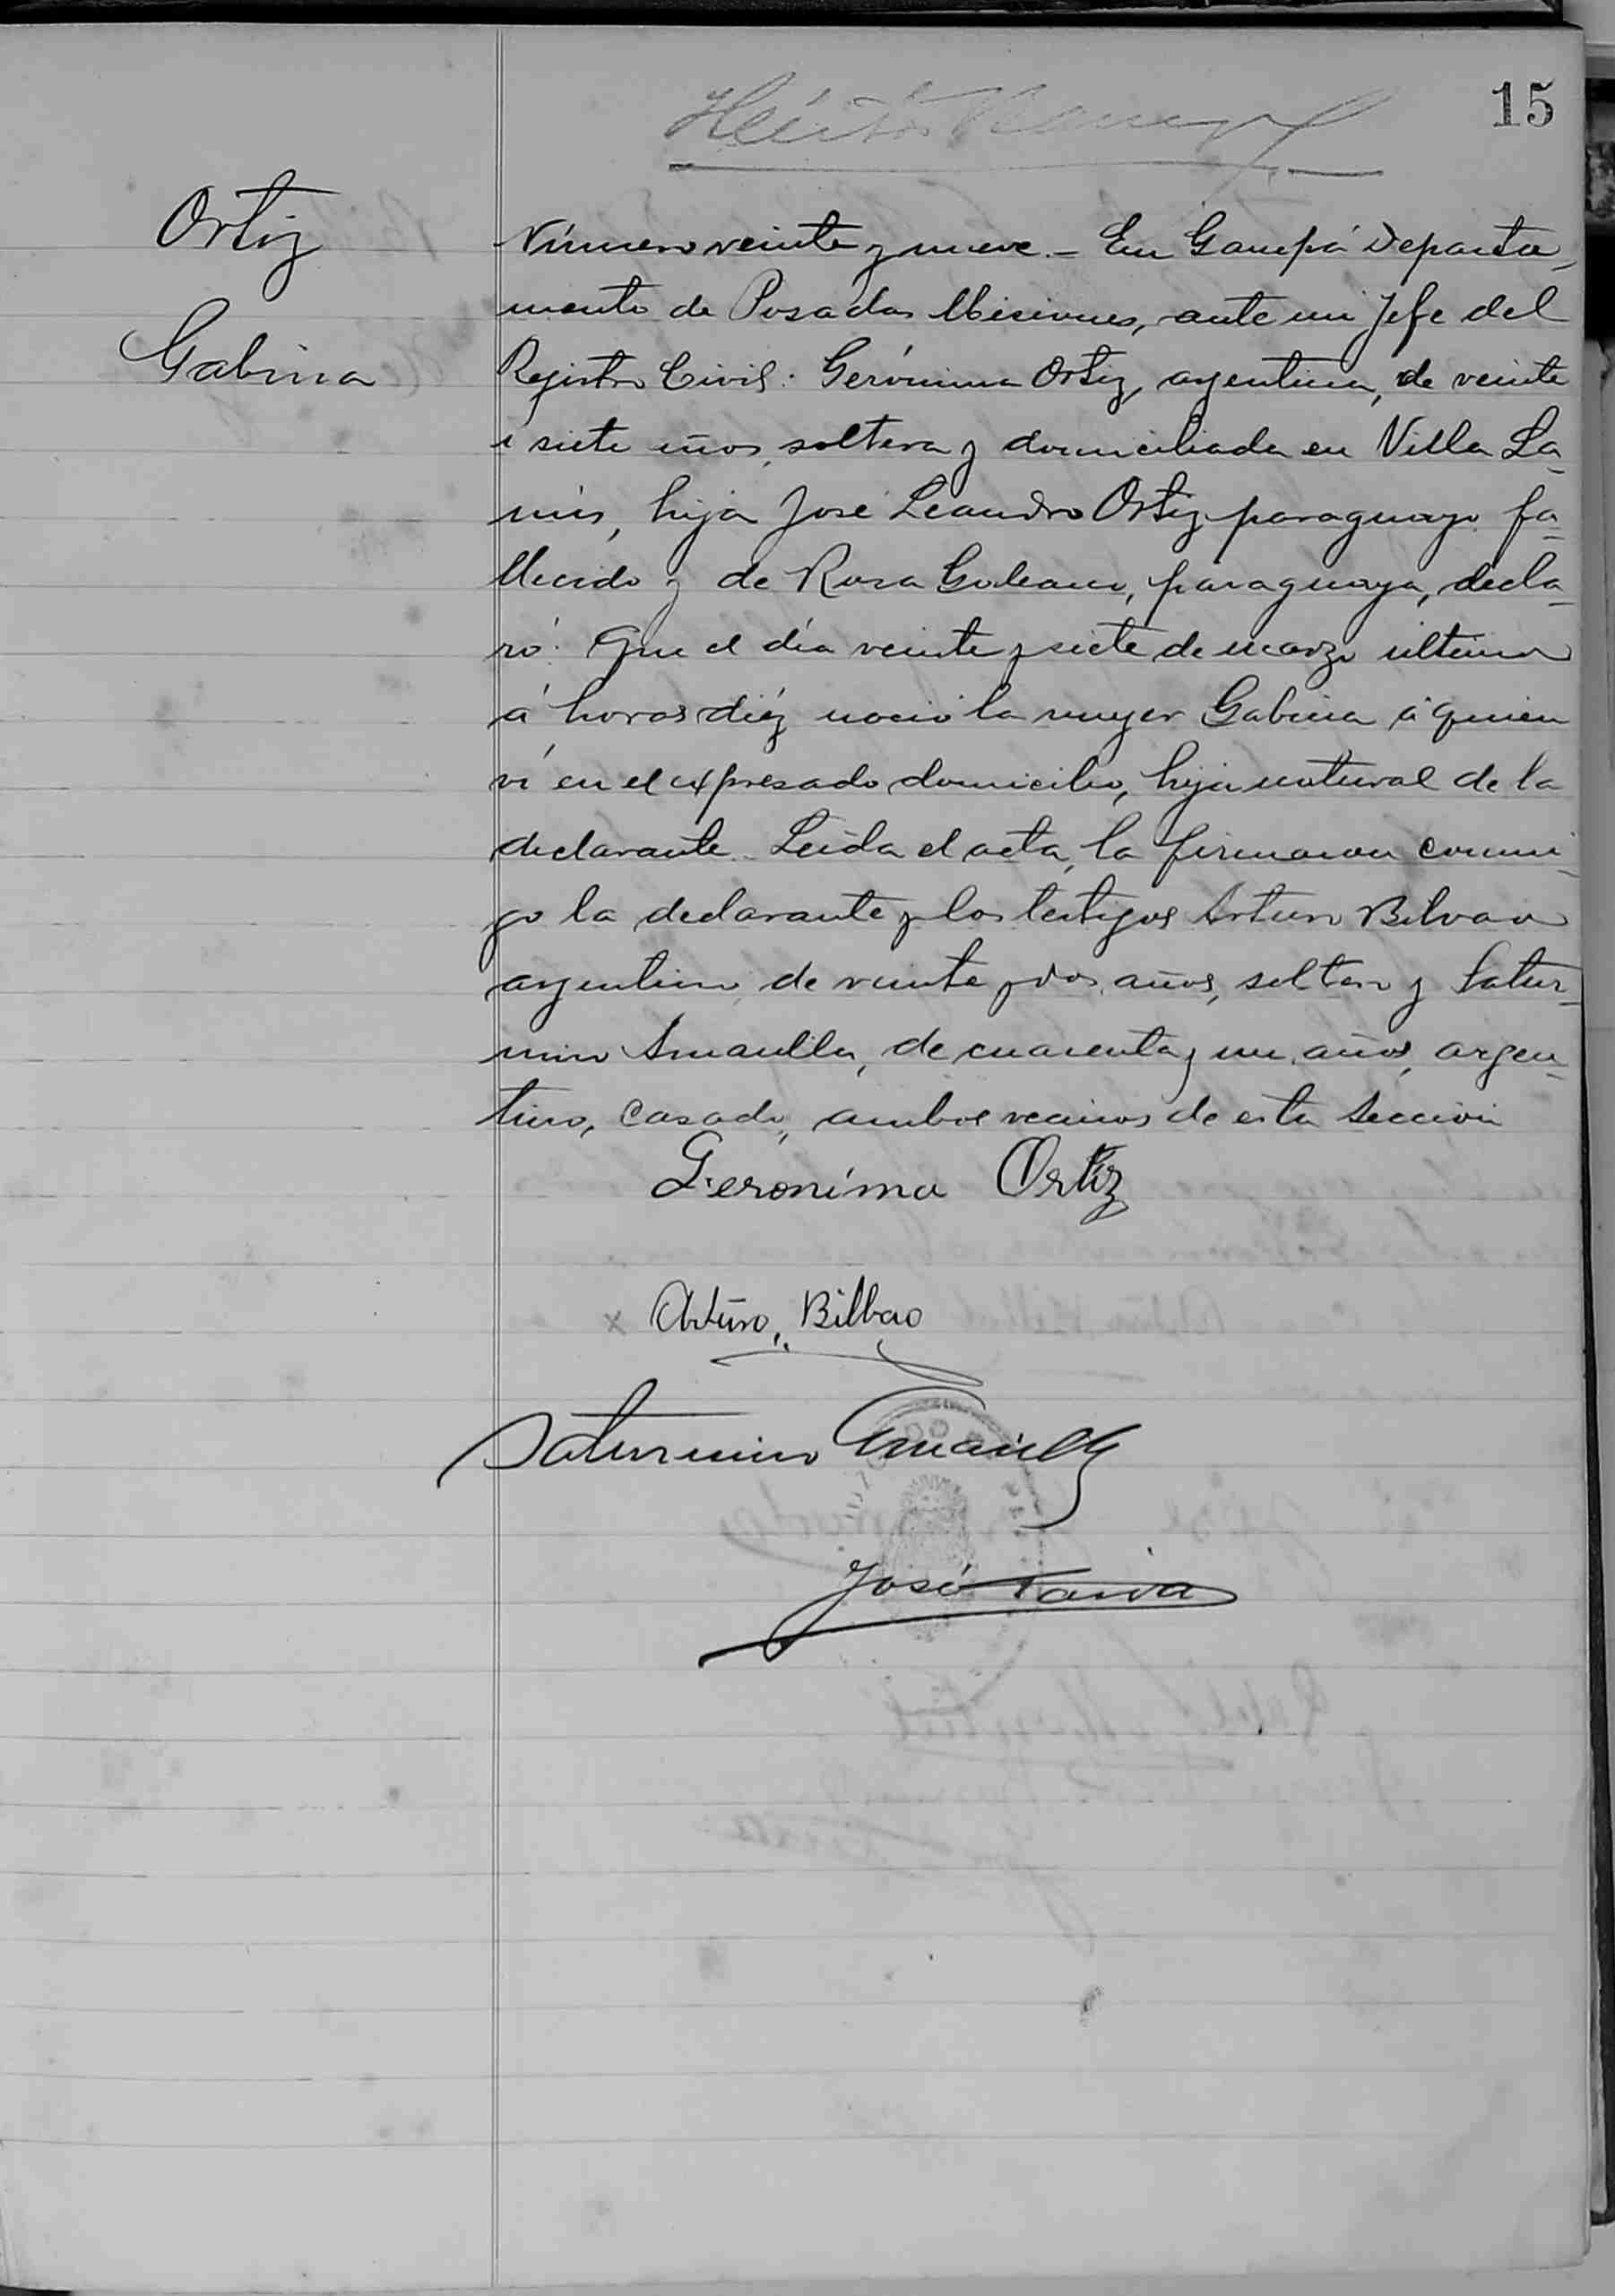 15
Héctor
Ortiz
Gabina
Número veinte y nueve.- En Garupá Departa-
mento de Posadas Misiones, ante mi Jefe del
Registro Civil: Gerónima Ortiz, argentina, de veinte
i siete años, soltera y domiciliada en Villa La-
nús, hija José Leandro Ortiz paraguayo fa-
llecido y de Rosa Galeano, paraguaya, decla-
ró: Que el día veinte y siete de marzo último
á horas diéz nació la muger Gabina á quien
ví en el expresado domicilio, hija natural de la
declarante. Leida el acta, la firmaron conmi-
go la declarante y los testigos Arturo Bilvao
argentino de veinte y dos años, soltero y Satur-
nino Amarilla, de cuarenta y un años, argen-
tino, casado, ambos vecinos de esta Sección
Geronima Ortiz
x Arturo Bilbao
Saturnino Amarilla
José Paiva